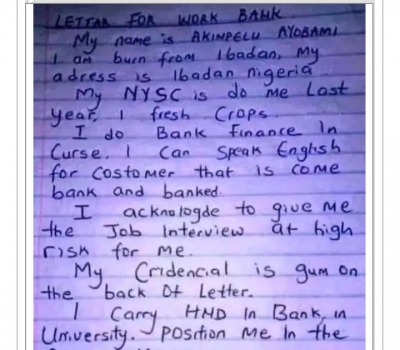 LETTAR FOR WORK BANK
My name is AKINPELU AYOBAMI
I am burn from Ibadan, my
adress is Ibadan nigeria
My NYSC is do me Last
year, I fresh Crops.
I do Bank finance In
Curse. I Can Speak English
for Costomer that is come
bank and banked.
I acknologde to give me
the Job Interview at high
risk for me.
My Cridencial is gum on
the back Of Letter.
I Carry HND In Bank, in
University. Position Me In the